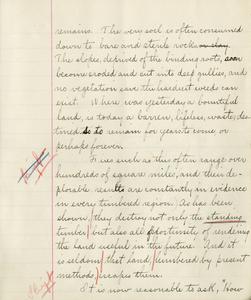 remains. The very soil is often consumed
down to bare and sterile rock or clay.
The slopes, deprived of the binding roots, soon
become eroded and cut into deep gullies, and
no vegetation save the hardiest weeds can
exist. Where was yesterday a bountiful
land, is today a barren, lifeless, waste, des-
tined to remain for years to come or
perhaps forever.
Fires such as this often range over
hundreds of square miles, and their de-
plorable results are constantly in evidence
in every timbered region. As has been
shown, they destroy not only the standing
timber but also all opportunity of rendering
the land useful in the future. And it
is seldom that land, lumbered by present
methods, escapes them.
It is now reasonable to ask, "How